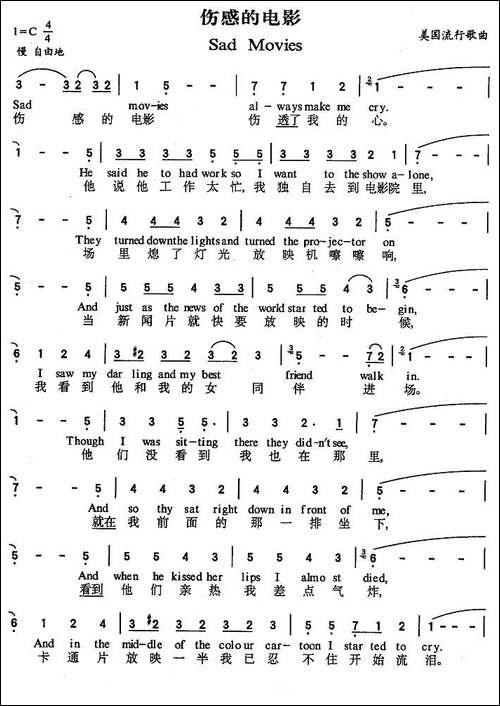 伤感的电影
1=C 4/4
Sad Movies
美国流行歌曲
慢 自由地
3 - 32 32 | 1 5 - - | 7 7 1 2 | 1 - - - |
Sad mov-ies al-ways make me cry.
伤 感 的 电影 伤 透了 我 的 心。
1 - - 5 | 3 3 3 5 5 | 3 3 3 2 1 | 7 - - - |
He said he to had work so I want to the show a-lone,
他 说 他 工 作 太 忙, 我 独 自 去 到 电影 院 里,
7 - - 5 | 4 4 4 3 4 | 4 4 4 3 4 | 5 - - - |
They turned downthe lights and turned the pro-jec-tor on
场 里 熄 了 灯 光 放 映 机 嚓 嚓 响,
5 - - 5 | 5 5 4 3 | 5 5 5 4 3 | 6 - - - |
And just as the news of the world star ted to be-gin,
当 新 闻 片 就 快 要 放 映 的 时 候,
6 1 2 4 | 3 #2 3 2 3 2 | 3 - - 5 | 7 2 1 - - |
I saw my dar ling and my best friend walk in.
我 看 到 他 和 我 的 女 同 伴 进 场。
1 - - 5 | 3 3 5 5· | 3 3 2· 1 | 7 - - - |
Though I was sit-ting there they did-n't see,
他 们 没 看 到 我 也 在 那 里,
7 - - 5 | 4 2 4 3 | 4 2 4 3 2 | 5 - - - |
And so thy sat right down in front of me,
就在 我 前 面 的 那 一 排 坐 下,
5 - - 5 | 5 5 4 3 | 5 5 4 3 | 6 - - - |
And when he kissed her lips I almo st died,
看到 他 们 亲 热 我 差 点 气 炸,
6 1 2 4 | 3 #2 3 2 3 | 3 3 5 7 2 | 1 - - - |
And in the mid-dle of the colour car-toon I star ted to cry.
卡 通 片 放 映 一 半 我 已 忍 不 住 开 始 流 泪。